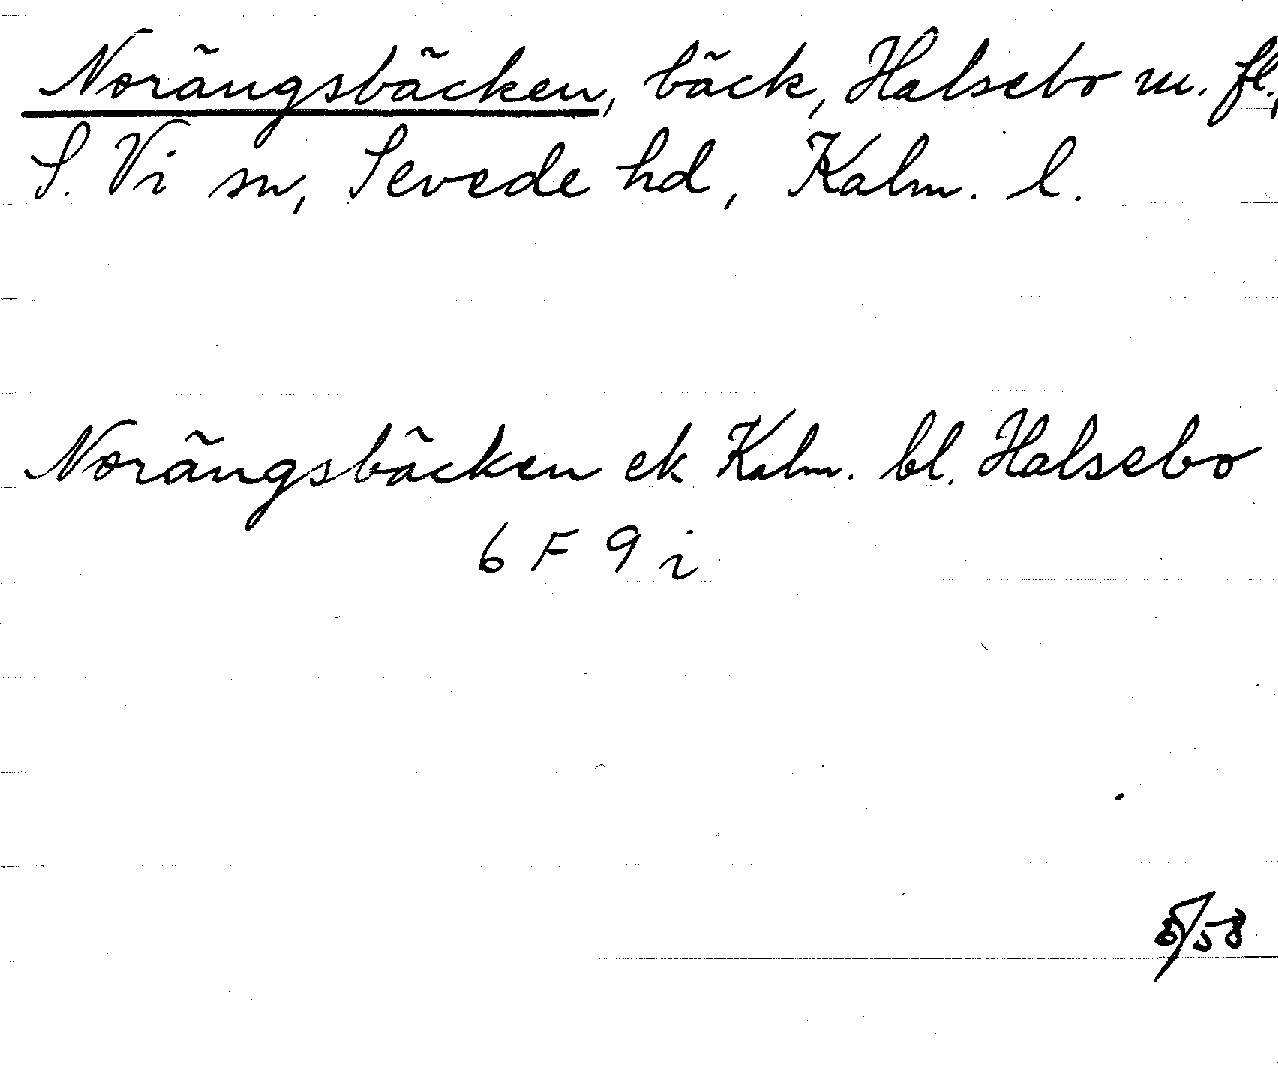 Norängsbäcken, bäck, Halsebo m. fl.,
S. Vi sn, Sevede hd, Kalm. l.
Norängsbäcken ek Kalm. bl. Halsebo
6 F 9 i
5/58